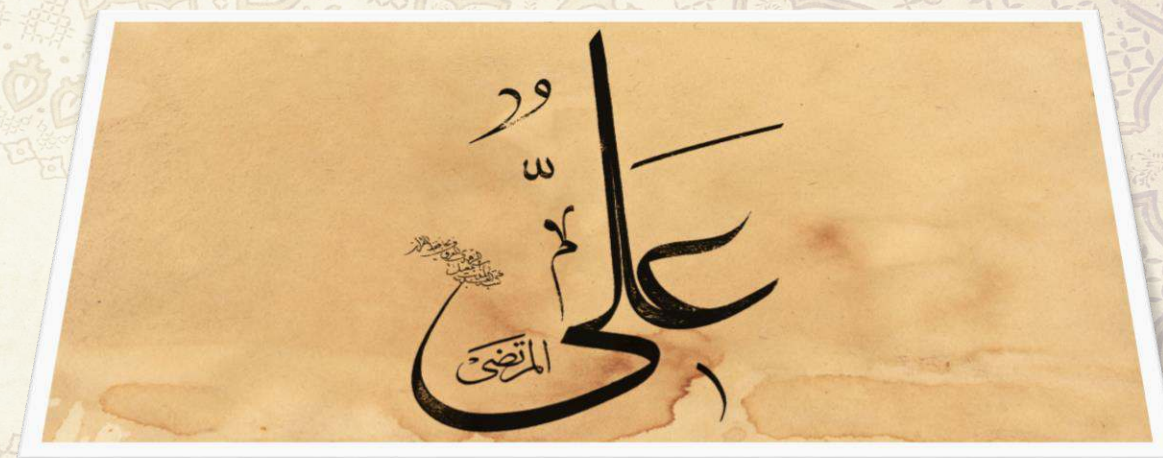 عَلِيٌّ
المرتضىٰ